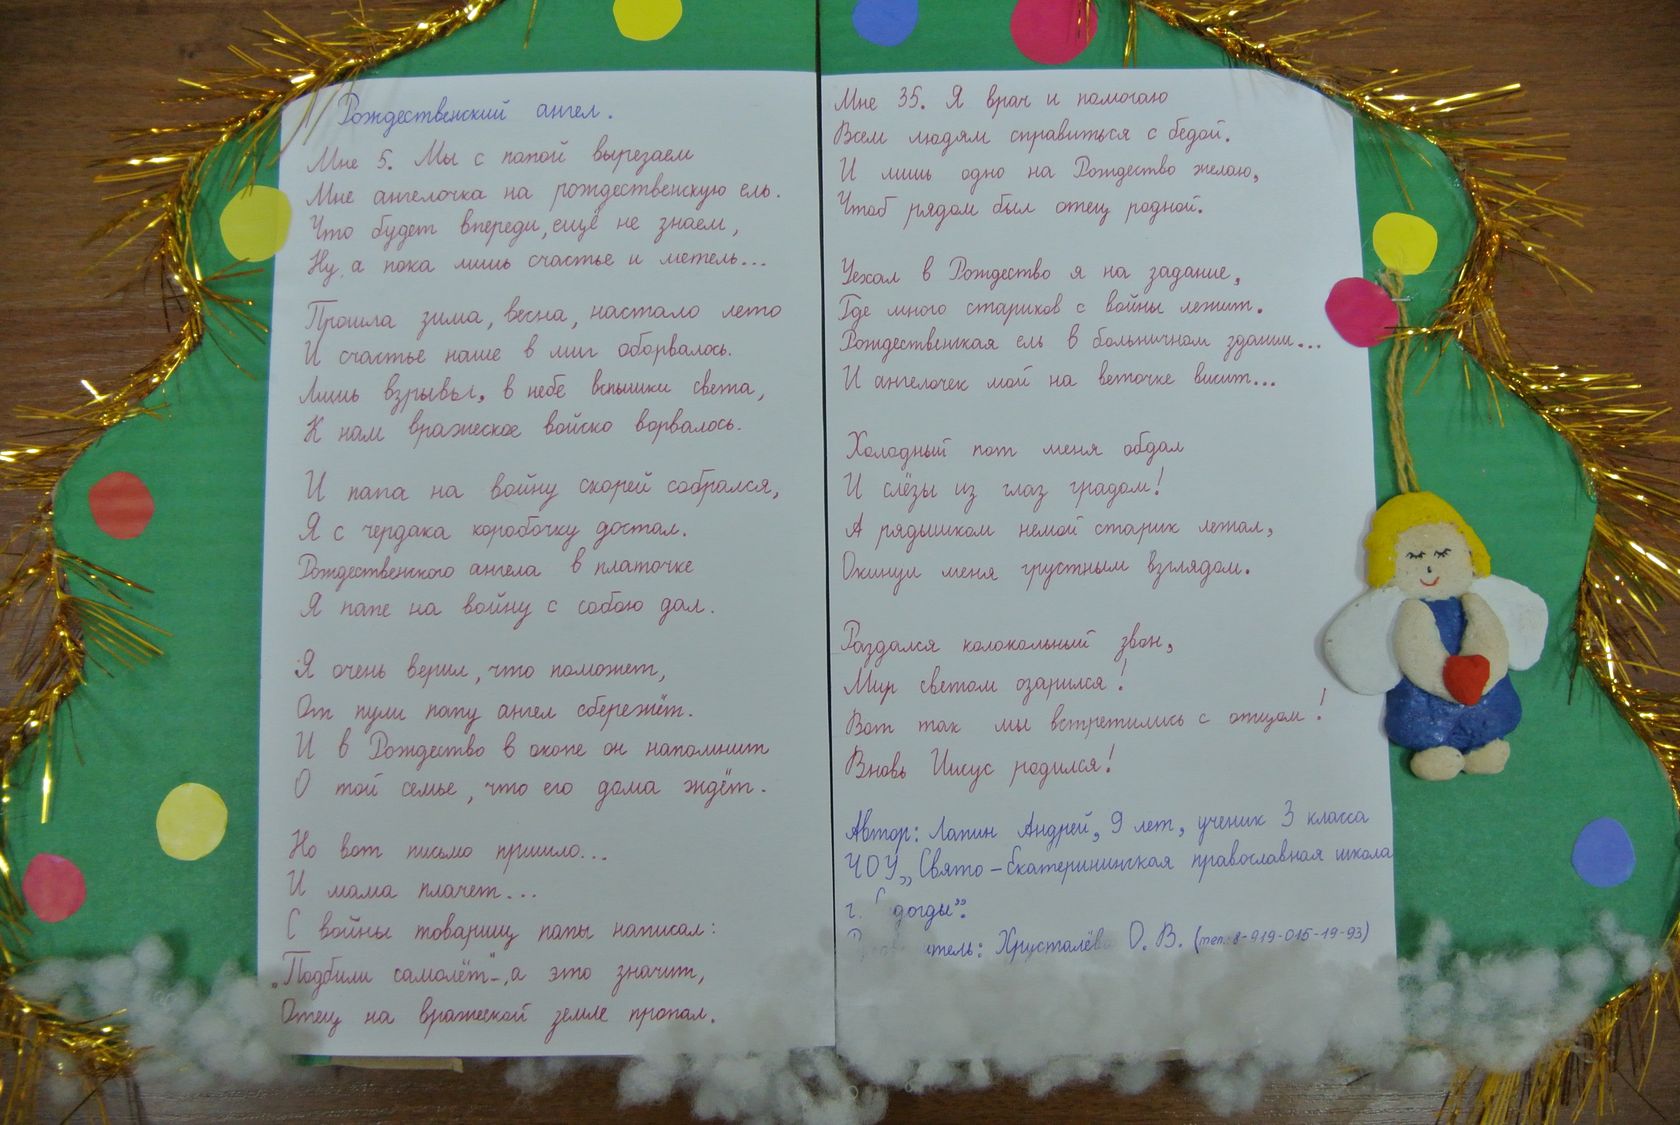 Рождественский ангел.
Мне 5. Мы с папой вырезаем
Мне ангелочка на рождественскую ель.
Что будет впереди, ещё не знаем,
Ну, а пока лишь счастье и метель...
Прошла зима, весна, настало лето
И счастье наше в миг оборвалось.
Лишь взрывы, в небе вспышки света,
К нам вражеское войско ворвалось.
И папа на войну скорей собрался,
Я с чердака коробочку достал.
Рождественского ангела в платочке
Я папе на войну с собою дал.
Я очень верил, что поможет,
От пули папу ангел сбережёт.
И в Рождество в окопе он напомнит
О той семье, что его дома ждёт.
Но вот письмо пришло...
И мама плачет...
С войны товарищ папы написал:
„Подбили самолёт“-, а это значит,
Отец на вражеской земле пропал.
Мне 35. Я врач и помогаю
Всем людям справиться с бедой.
И лишь одно на Рождество желаю,
Чтоб рядом был отец родной.
Уехал в Рождество я на задание,
Где много стариков с войны лежит.
Рождественская ель в больничном здании...
И ангелочек мой на веточке висит...
Холодный пот меня обдал
И слёзы из глаз градом!
А рядышком немой старик лежал,
Окинул меня грустным взглядом.
Раздался колокольный звон,
Мир светом озарился!
Вот так мы встретились с отцом!
Вновь Иисус родился!
Автор: Лапин Андрей, 9 лет, ученик 3 класса
ЧОУ „Свято-Екатерининская православная школа
г.
: Хрусталёва О. В. (тел.: 8-919-015-19-93)